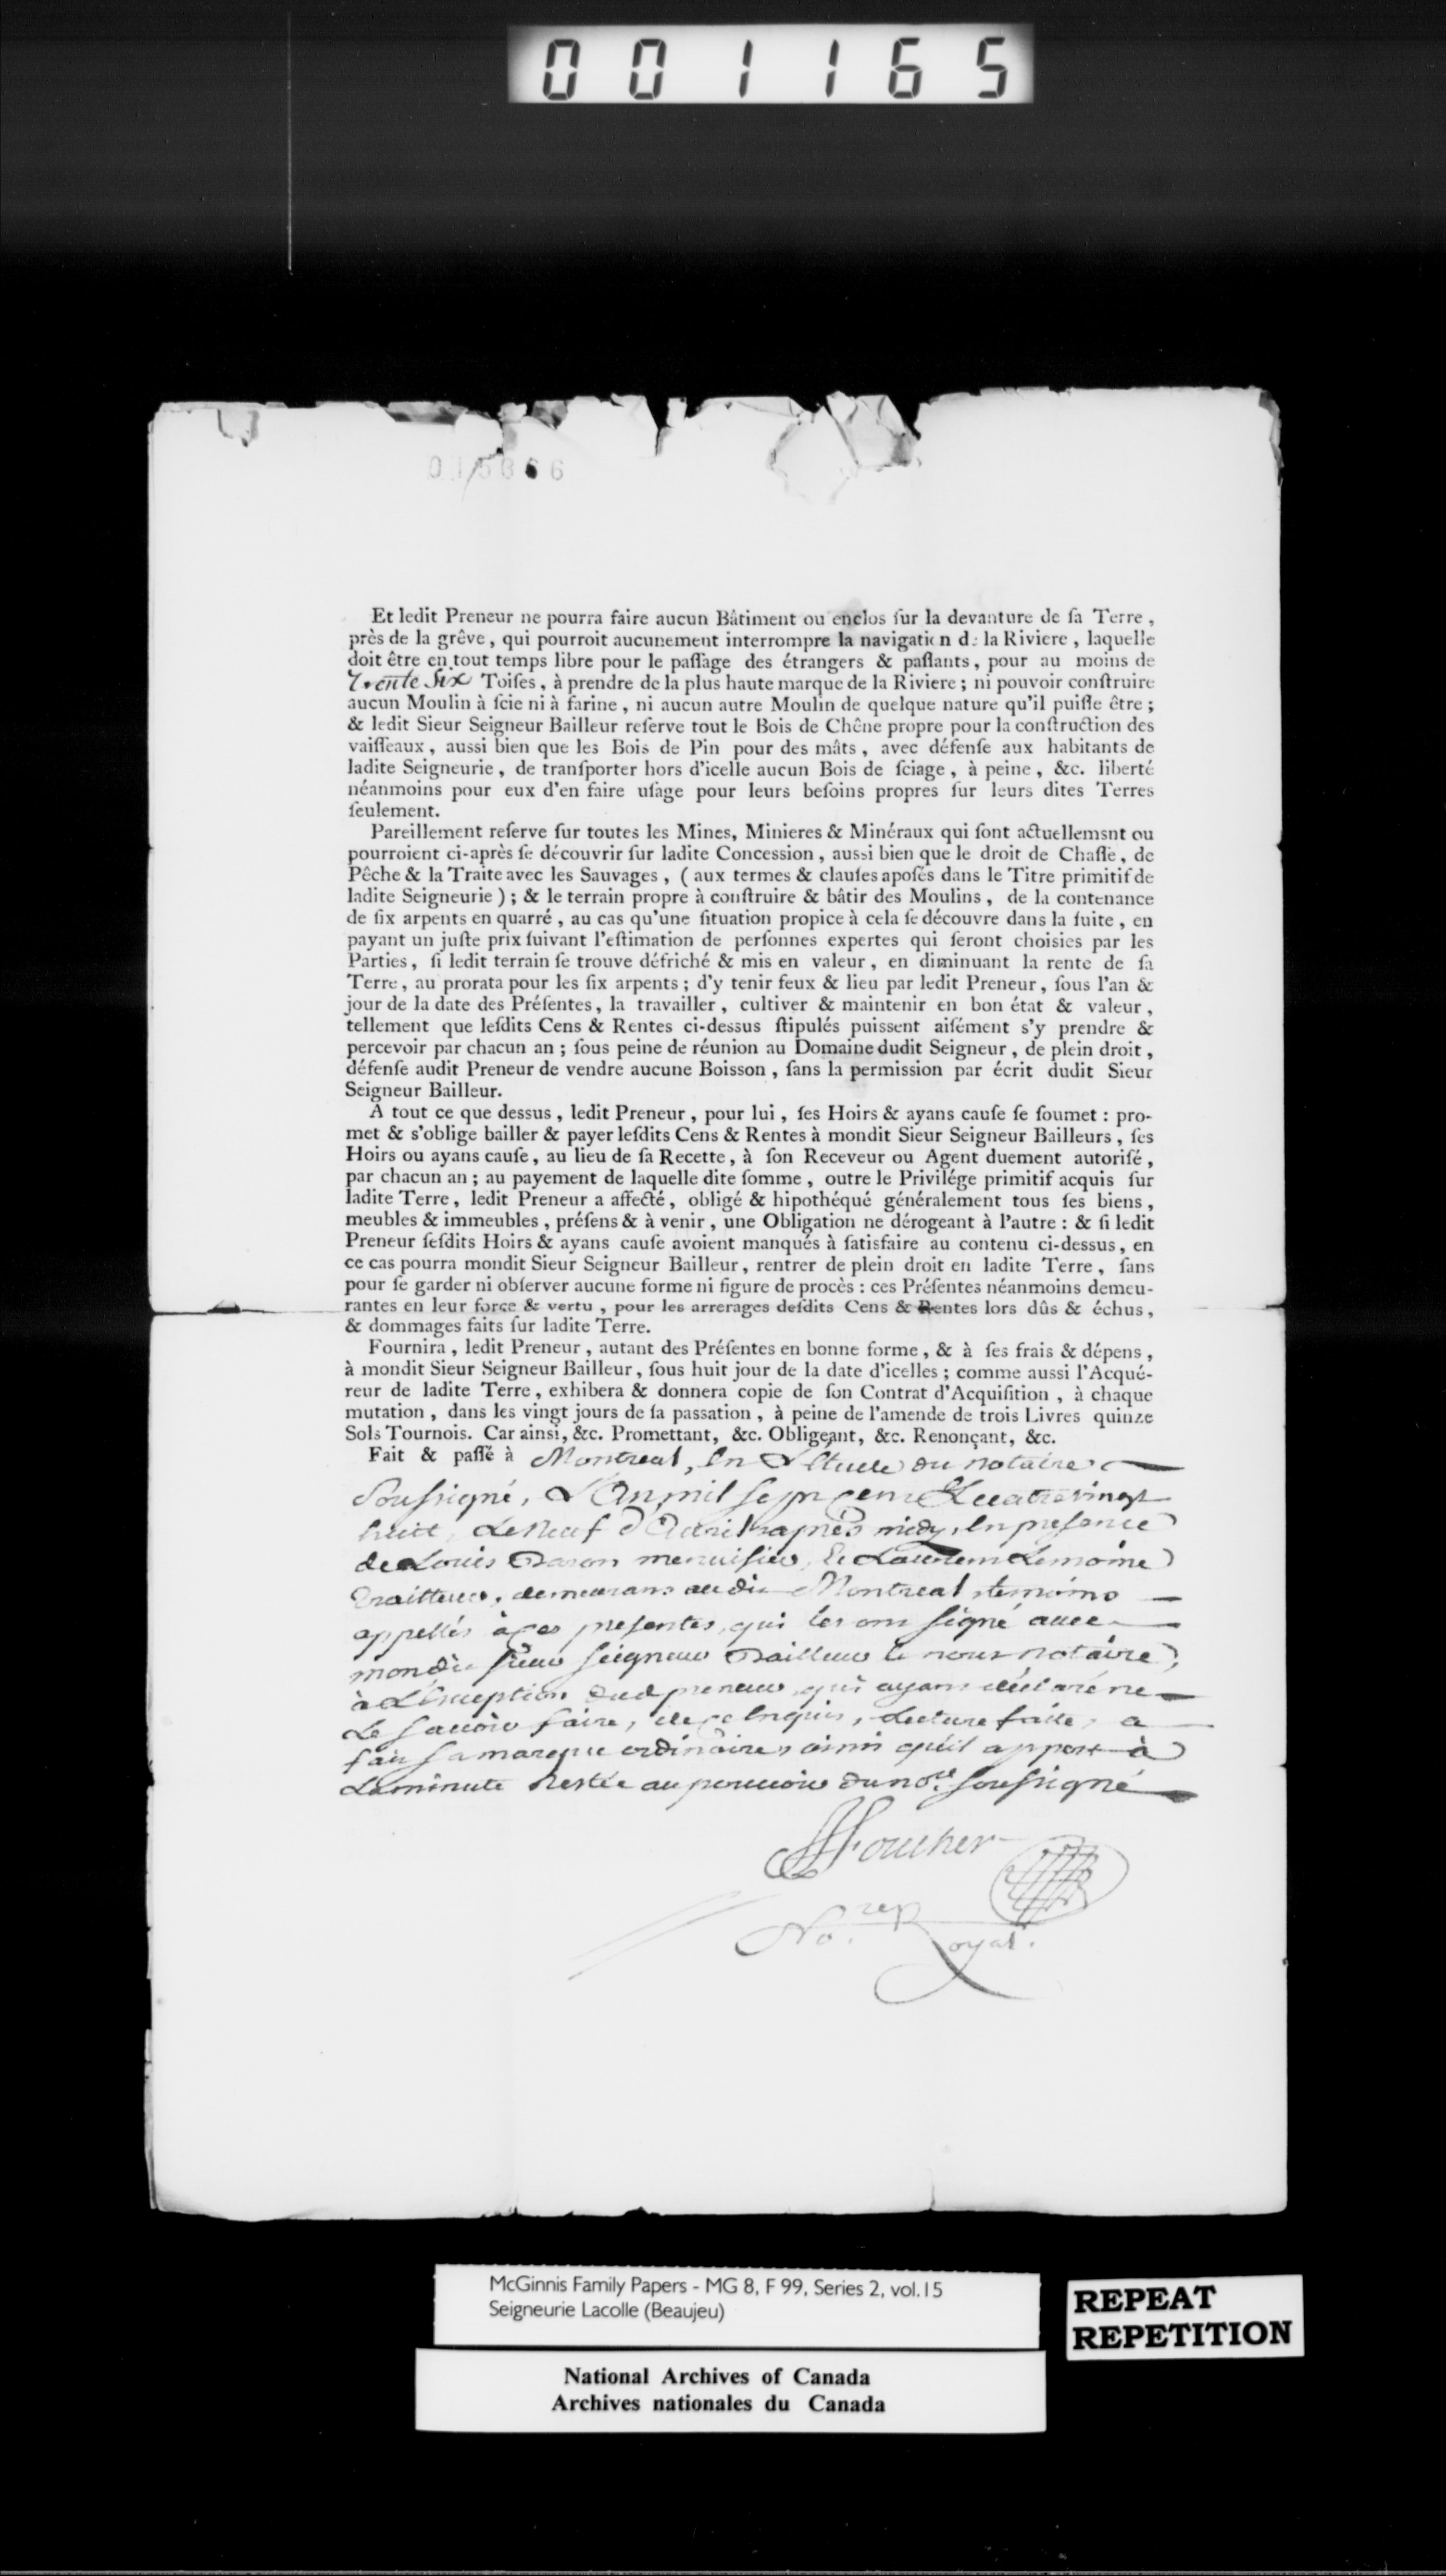 001165
Et ledit Preneur ne pourra faire aucun Bâtiment ou enclos ſur la devanture de ſa Terre,
près de la grêve, qui pourroit aucunement interrompre la navigati n d la Riviere, laquelle
doit être en tout temps libre pour le paſſage des étrangers & paſſants, pour au moins de
Trente Six Toiſes, à prendre de la plus haute marque de la Riviere; ni pouvoir conſtruire
aucun Moulin à ſcie ni à farine, ni aucun autre Moulin de quelque nature qu'il puiſſe être;
& ledit Sieur Seigneur Bailleur reſerve tout le Bois de Chêne propre pour la conſtruction des
vaiſſeaux, aussi bien que les Bois de Pin pour des mâts, avec défenſe aux habitants de
ladite Seigneurie, de tranſporter hors d'icelle aucun Bois de ſciage, à peine, &c. liberté
néanmoins pour eux d'en faire uſage pour leurs beſoins propres ſur leurs dites Terres
ſeulement.
Pareillement reſerve ſur toutes les Mines, Minieres & Minéraux qui ſont actuellemsnt ou
pourroient ci-après ſe découvrir ſur ladite Concession, aussi bien que le droit de Chaſſe, de
Pêche & la Traite avec les Sauvages, (aux termes & clauſes apoſés dans le Titre primitif de
ladite Seigneurie); & le terrain propre à conſtruire & bâtir des Moulins, de la contenance
de ſix arpents en quarré, au cas qu'une ſituation propice à cela ſe découvre dans la ſuite, en
payant un juſte prix ſuivant l'eſtimation de perſonnes expertes qui ſeront choisies par les
Parties, ſi ledit terrain ſe trouve défriché & mis en valeur, en diminuant la rente de ſa
Terre, au prorata pour les ſix arpents; d'y tenir feux & lieu par ledit Preneur, ſous l'an &
jour de la date des Préſentes, la travailler, cultiver & maintenir en bon état & valeur,
tellement que leſdits Cens & Rentes ci-dessus ſtipulés puissent aiſément s'y prendre &
percevoir par chacun an; ſous peine de réunion au Domaine dudit Seigneur, de plein droit,
défenſe audit Preneur de vendre aucune Boisson, ſans la permission par écrit dudit Sieur
Seigneur Bailleur.
A tout ce que dessus, ledit Preneur, pour lui, ſes Hoirs & ayans cauſe ſe ſoumet: pro-
met & s'oblige bailler & payer leſdits Cens & Rentes à mondit Sieur Seigneur Bailleurs, ſes
Hoirs ou ayans cauſe, au lieu de ſa Recette, à ſon Receveur ou Agent duement autoriſé,
par chacun an; au payement de laquelle dite ſomme, outre le Privilége primitif acquis ſur
ladite Terre, ledit Preneur a affecté, obligé & hipothéqué généralement tous ſes biens,
meubles & immeubles, préſens & à venir, une Obligation ne dérogeant à l'autre: & ſi ledit
Preneur ſeſdits Hoirs & ayans cauſe avoient manqués à ſatisfaire au contenu ci-dessus, en
ce cas pourra mondit Sieur Seigneur Bailleur, rentrer de plein droit en ladite Terre, ſans
pour ſe garder ni obſerver aucune forme ni figure de procès: ces Préſentes néanmoins demeu-
rantes en leur force & vertu, pour les arrerages deſdits Cens & Rentes lors dûs & échus,
& dommages faits ſur ladite Terre.
Fournira, ledit Preneur, autant des Préſentes en bonne forme, & à ſes frais & dépens,
à mondit Sieur Seigneur Bailleur, ſous huit jour de la date d'icelles; comme aussi l'Acqué-
reur de ladite Terre, exhibera & donnera copie de ſon Contrat d'Acquiſition, à chaque
mutation, dans les vingt jours de ſa passation, à peine de l'amende de trois Livres quinze
Sols Tournois. Car ainsi, &c. Promettant, &c. Obligeant, &c. Renonçant, &c.
Fait & paſſé à Montreal, En L'Etude du notaire
Soussigné, L'An mil sept cent Quatrevingt
huit, Le Neuf d'Avril après midy, En presence
de Louis menuisier, Et Laurent Lemoine
demeurans audit Montreal temoins
appellés à ces presentes, qui les ont signé avec
mondit sieur seigneur Bailleur & nous notaire,
à L'Exception dud preneur qui ayant déclaré ne
Le savoir faire, de ce Enquis, Lecture faite, a
fait sa marque ordinaire, ainsi qu'il appert à
La minute Restée au pouvoir du no.re soussigné
Foucher
rep
No. Royal.
McGinnis Family Papers - MG 8, F 99, Series 2, vol.15
Seigneurie Lacolle (Beaujeu)
REPEAT
REPETITION
National Archives of Canada
Archives nationales du Canada